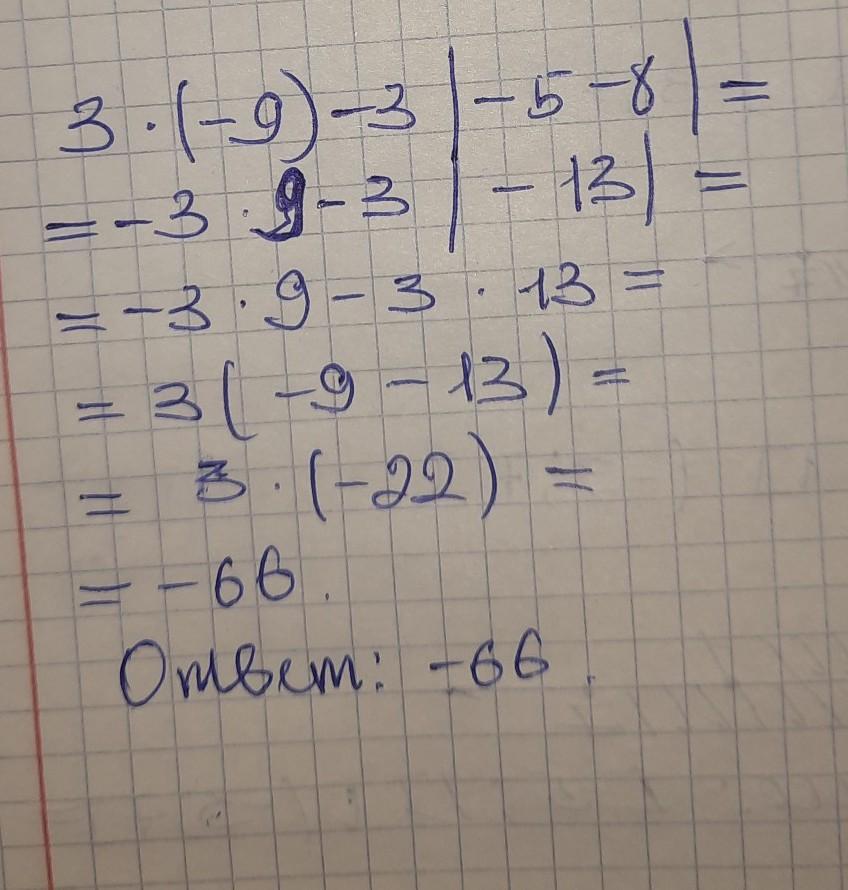 3 · (-9) - 3 | - 5 - 8 | =
= - 3 · 9 - 3 | - 13 | =
= - 3 · 9 - 3 · 13 =
= 3 ( - 9 - 13 ) =
= 3 · ( - 22 ) =
= - 66 .
Ответ: - 66 .